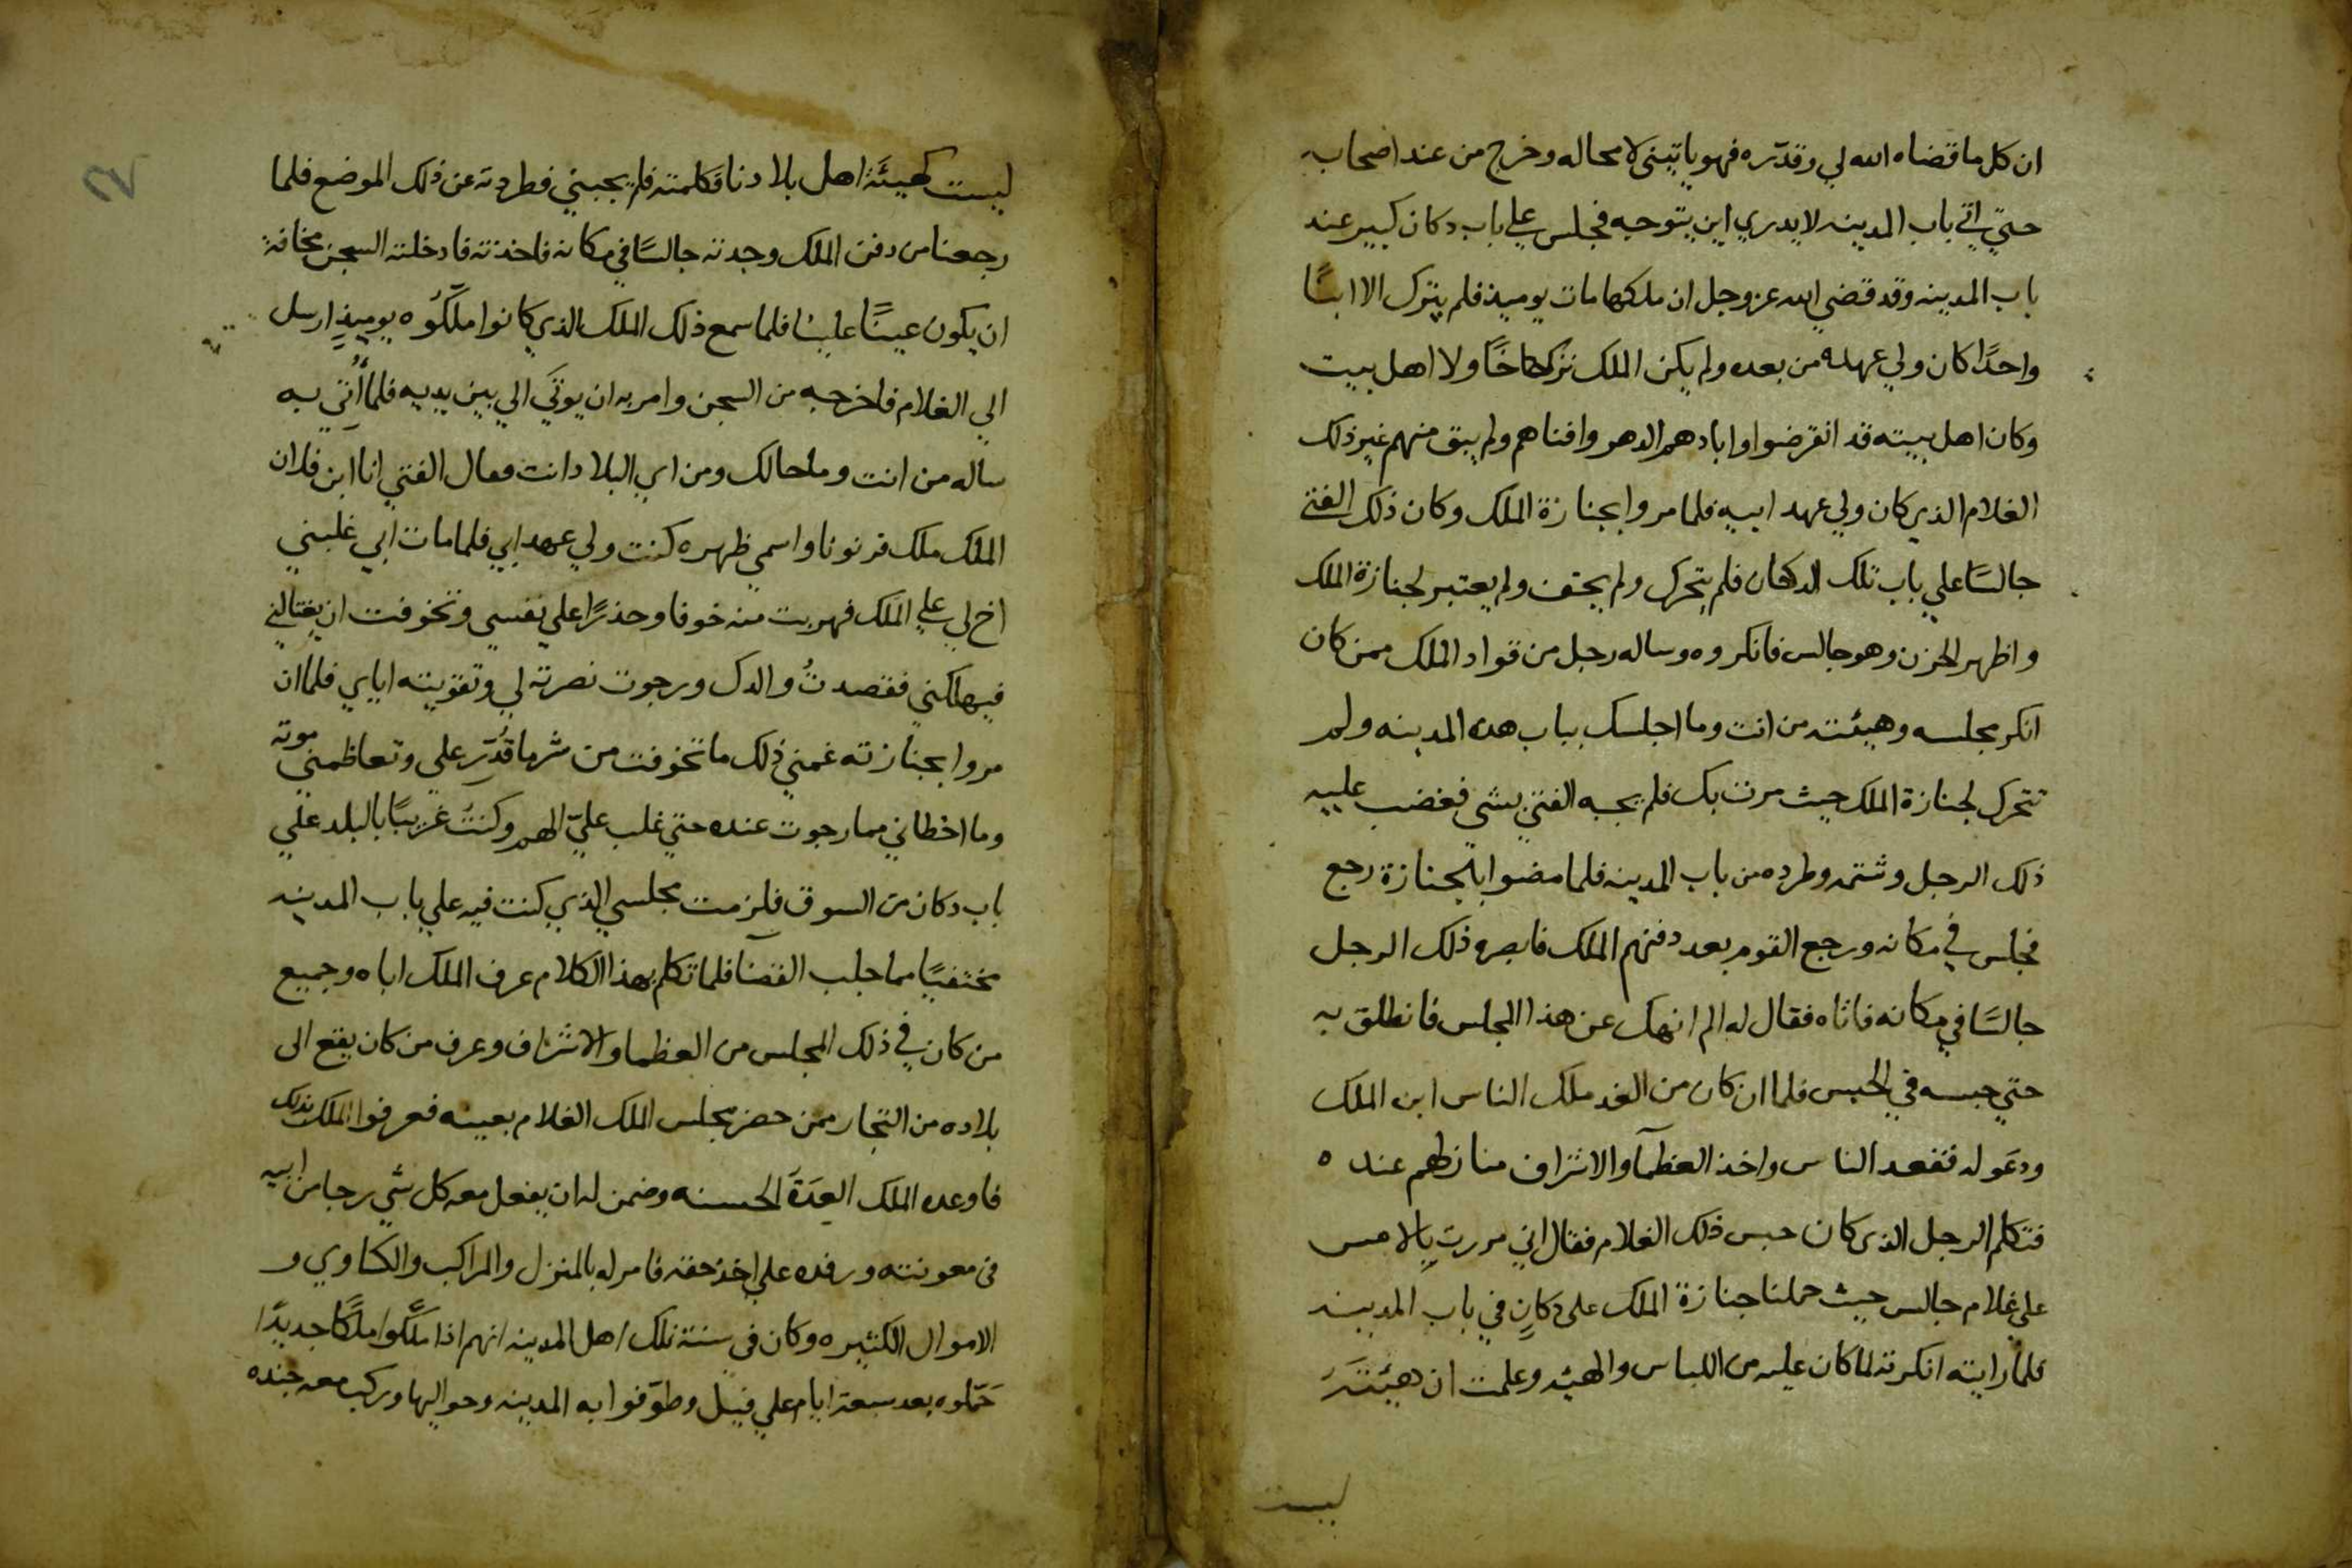 ان كل ما قضاه الله لي وقدّره فهو ياتيني لا محاله وخرج من عند اصحابه
حتي اتي باب المدينه لا يدري اين يتوجه فجلس علي باب دكان كبير عند
باب المدينه وقد قضي الله عز وجل ان ملكها مات يوميذ فلم يترك الا ابنًا
واحدًا كان ولي عهده من بعده ولم يكن الملك ترك اخًا ولا اهل بيت
وكان اهل بيته قد انقرضوا وابادهم الدهر وافناهم ولم يبق منهم غير ذلك
الغلام الذي كان ولي عهد ابيه فلما مروا بجنازة الملك وكان ذلك الفتي
جالسًا علي باب تلك الدكان فلم يتحرك ولم يحتف ولم يعتبر لجنازة الملك
واظهر الحزن وهو جالس فانكروه وساله رجل من قواد الملك ممن كان
انكر مجلسه وهيئته من انت وما اجلسك بباب هذه المدينه ولم
تتحرك لجنازة الملك حيث مرت بك فلم يجبه الفتي بشي فغضب عليه
ذلك الرجل وشتمه وطرده من باب المدينه فلما مضوا بالجنازة رجع
فجلس في مكانه ورجع القوم بعد دفنهم الملك فابصره ذلك الرجل
جالسًا في مكانه فاتاه فقال له الم انهك عن هذا المجلس فانطلق به
حتي حبسه في الحبس فلما ان كان من الغد ملك الناس ابن الملك
ودعو له فقعد الناس واخذ العظمآ والاشراف منازلهم عنده
فتكلم الرجل الذي كان حبس ذلك الغلام فقال اني مررت بالامس
علي غلام جالس حيث حملنا جنازة الملك علي دكانٍ في باب المدينه
فلما رايته انكرته لما كان عليه من اللباس والهيئه وعلمت ان هيئته
ليست
ليست كهيئة اهل بلادنا فكلمته فلم يجبني فطردته عن ذلك الموضع فلما
رجعنا من دفن الملك وجدته جالسًا في مكانه فاخذته فادخلته السجن مخافة
ان يكون عينًا علينا فلما سمع ذلك الملك الذي كانوا ملّكُوه يوميذٍ ارسل
الي الغلام فاخرجه من السجن وامر به ان يوتَي الي بين يديه فلما أُتي به
ساله من انت وما حالك ومن اي البلاد انت فقال الفتي انا ابن فلان
الملك ملك قرنونا واسمي ظهره كنت ولي عهد ابي فلما مات ابي غلبني
اخ لي علي الملك فهربت منه خوفا وحذرًا علي نفسي وتخوفت ان يغتالني
فيهلكني فقصدتُ والدك ورجوت نصرته لي وتقويته اياي فلما ان
مروا بجنازته غمني ذلك ما تخوفت من شر ما قُدّر علي وتعاظمني موته
وما اخطاني مما رجوت عنده حتي غلب عليّ الهم وكنتُ غريبًا بالبلد علي
باب دكان من السوق فلزمت مجلسي الذي كنت فيه علي باب المدينه
مختفيًا مما جلب القضآ فلما تكلم بهذا الكلام عرف الملك اباه وجميع
من كان في ذلك المجلس من العظما والاشراف وعرف من كان يقع الي
بلاده من التجار ممن حضر مجلس الملك الغلام بعينه فعرفوا الملك بذلك
فاوعده الملك العِدَةَ الحسنه وضمن له ان يفعل معه كل شي رجا من ابيه
في معونته ورفده علي اخذ حقه فامر له بالمنزل والمراكب والكساوي و
الاموال الكثيره وكان في سنة تلك اهل المدينه انهم اذا ملّكوا ملكًا جديدًا
حَمّلوه بعد سبعة ايام علي فيل وطوّفوا به المدينه وحواليها وركب معه جنده